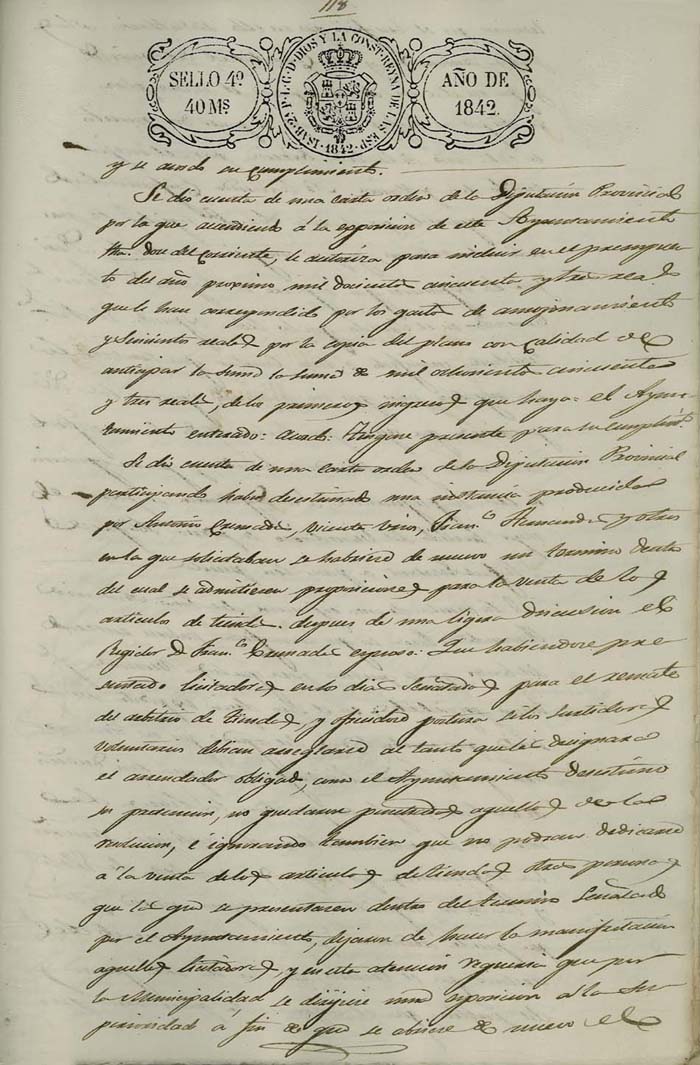 118
SELLO 4º
40 Ms
ISAB. 2ª P. L. G. D. DIOS Y LA CONST. REYNA DE LAS ESP. 1842
AÑO DE
1842.
y se acordó su cumplimiento.
Se dio cuenta de una carta orden de la Diputacion Provincial
por la que accediendo á la esposicion de este Ayuntamiento
fha. doce del corriente, le autoriza para incluir en el presupues
to del año procsimo mil doscientos cincuenta y tres reales
que le han correspondido por los gastos de amojonamiento
y seiscientos reales por la copia del plano con calidad de
anticipar la suma la suma de mil ochocientos cincuenta
y tres reales, de los primeros ingresos que haya: el Ayun-
tamiento enterado: Acordó: Tengase presente para su cumplimto.
Se dio cuenta de una carta orden de la Diputacion Provincial
participando haber desestimado una instancia producida
por Antonio Vicente Franco. Hernandez y otros
en la que solicitaban se habriese de nuevo un termino dentro
del cual se admitiesen proposiciones para la venta de los
articulos de tienda. despues de una ligera discusion el
Regidor D. Franco. espuso: Que habiendose pre
sentado licitadores en los dias señalados para el remate
del arbitrio de Tiendas, y ofreciendo postura si los surtidores
voluntarios debian arreglarse al tanto que les designara
el arrendador obligado, como el Ayuntamiento desestimó
su pretencion, no quedaron aquellos de
, e ignorando tambien que no podrian dedicarse
á la venta de los articulos de tiendas otras personas
que las que se presentaren dentro del termino señalado
por el Ayuntamiento, dejaron de hacer la manifestacion
aquellos licitadores, y en esta atencion requeria que por
la Municipalidad se dirijiese una esposicion á la Su
perioridad á fin de que se abriese de nuevo el